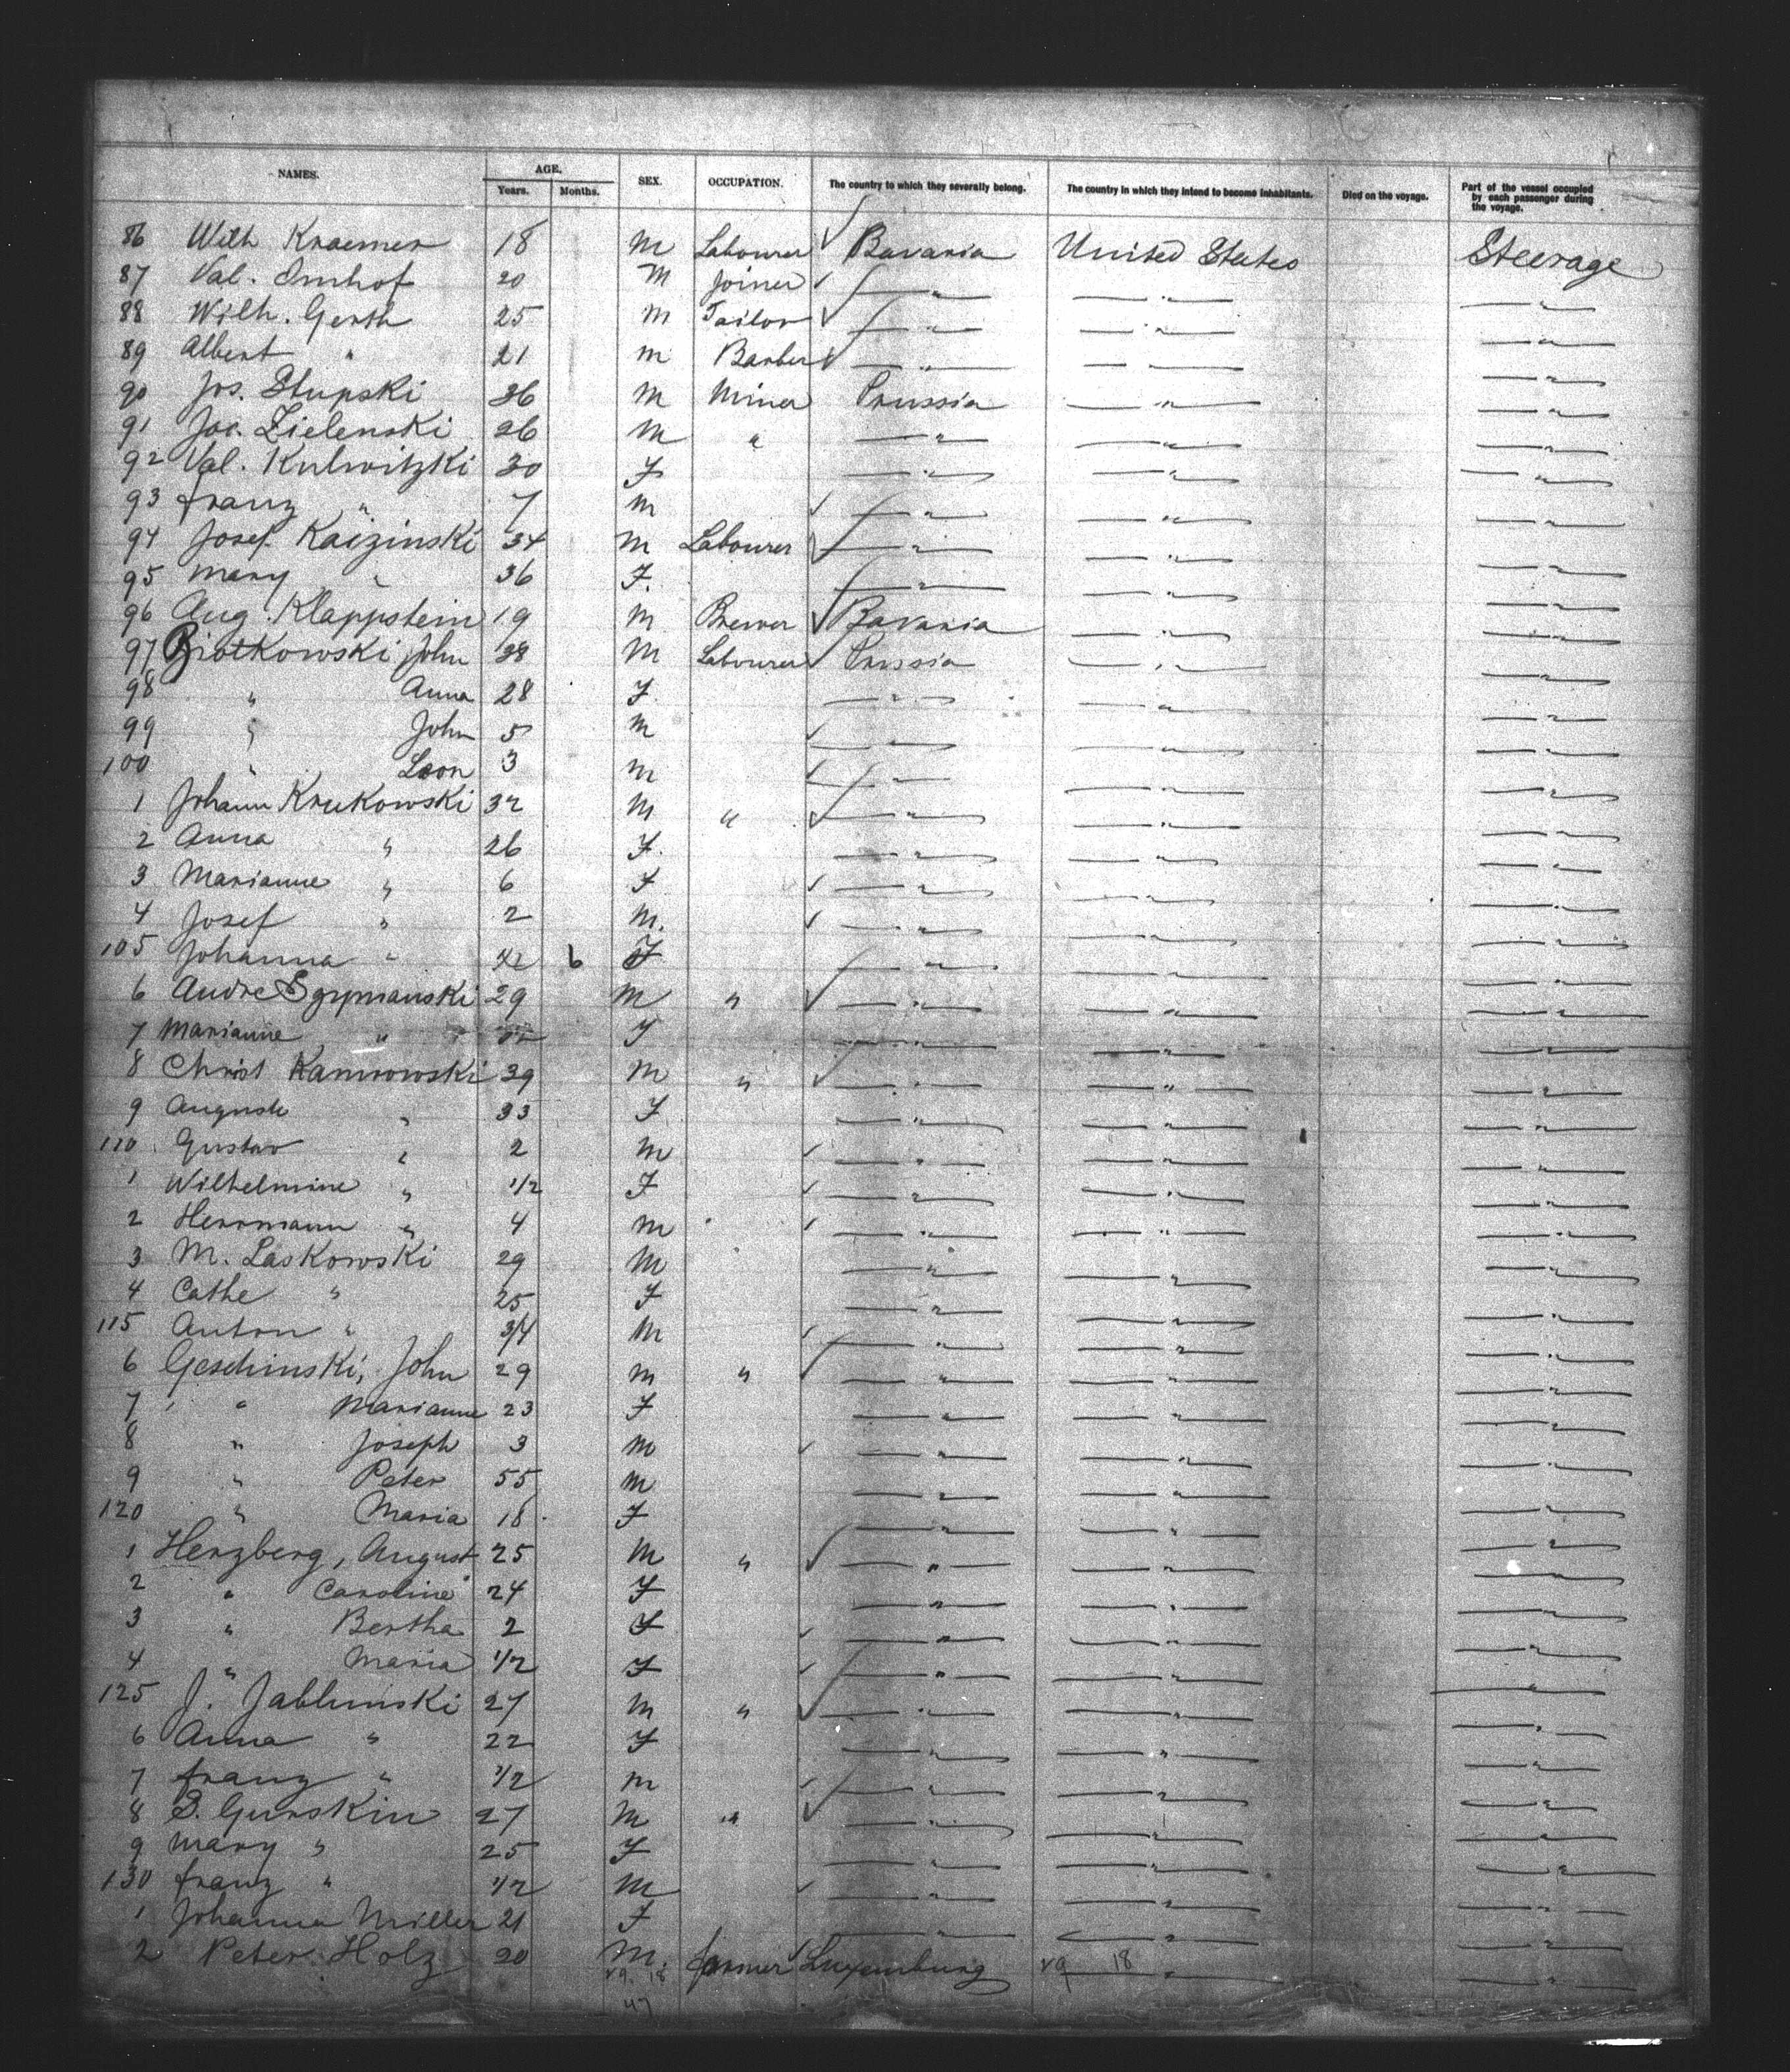 NAMES. AGE. SEX. OCCUPATION. The country to which they severally belong. The country in which they intend to become inhabitants. Died on the voyage. Part of the vessel occupied by each passenger during the voyage.
Years. Months.
86 Wilh Kraemer 18 M Labourer Bavaria United States Steerage
87 Val. Imhof 20 M Joiner " " "
88 Wilh. Gerth 25 M Tailor " " "
89 Albert " 21 M Barber " " "
90 Jos. Stupski 36 M Miner Prussia " "
91 Jos. Zielenski 26 M " " " "
92 Val. Kulwitzki 30 F " " "
93 Franz " 7 M " " "
94 Josef Kaizinski 34 M Labourer " " "
95 Mary " 36 F. " " "
96 Aug. Klappstein 19 M Brewer Bavaria " "
97 John 38 M Labourer Prussia " "
98 " Anna 28 F " " "
99 " John 5 M " " "
100 " Leon 3 M " " "
1 Johann Krukowski 32 M " " " "
2 Anna " 26 F. " " "
3 Marianne " 6 F " " "
4 Josef " 2 M. " " "
105 Johanna " 6 F " " "
6 Andre Szymanski 29 M " " " "
7 Marianne " F " " "
8 Christ Kamrowski 39 M " " " "
9 Auguste " 33 F " " "
110 Gustav " 2 M " " "
1 Wilhelmine " 1/2 F " " "
2 Herrmann " 4 M " " "
3 M. Laskowski 29 M " " "
4 Cathe " 25 F " " "
115 Anton " 3/4 M " " "
6 Geschinski, John 29 M " " " "
7 " Marianne 23 F " " "
8 " Joseph 3 M " " "
9 " Peter 55 M " " "
120 " Maria 18 F " " "
1 Herzberg, August 25 M " " " "
2 " Caroline 24 F " " "
3 " Bertha 2 F " " "
4 " Maria 1/2 F " " "
125 J. Jablunski 27 M " " " "
6 Anna " 22 F " " "
7 Franz " 1/2 M " " "
8 S. Gurskin 27 M " " " "
9 Mary " 25 F " " "
130 Franz " 1/2 M " " "
1 Johanna Miller 21 F " " "
2 Peter Holz 20 M. Farmer Luxemburg " "
v9. 18 v9 18
47